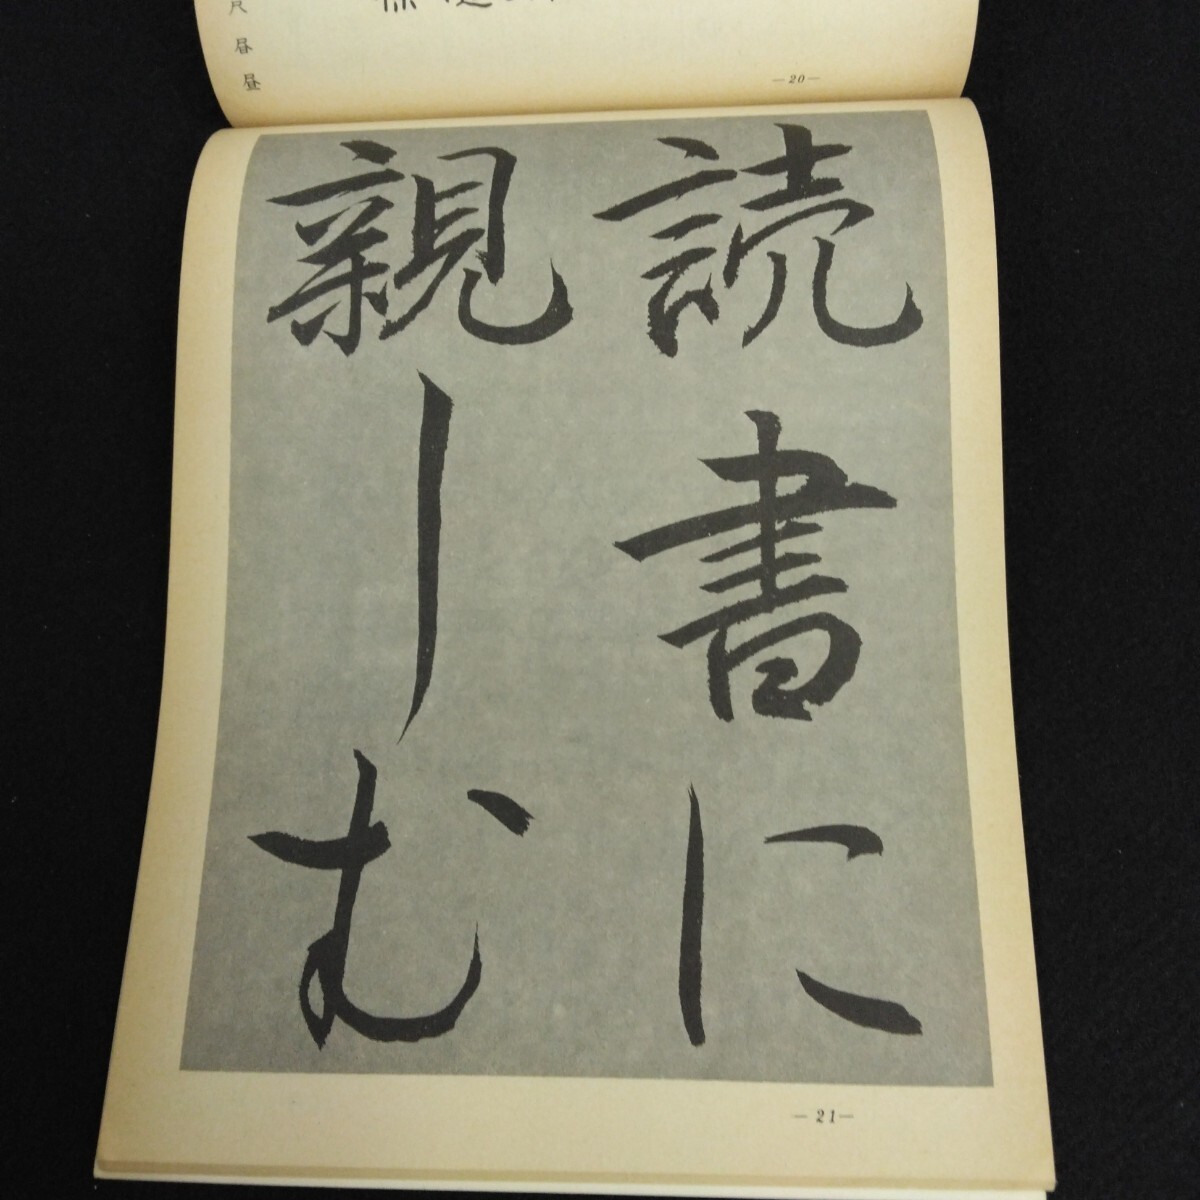 尺
昼
昼
—20—
読書に
親しむ
—21—